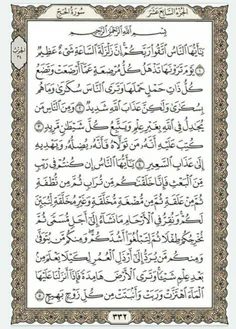 الجُزْءُ السَّابِعَ عَشَرَ
سُورَةُ الحَجِّ
بِسْمِ ٱللَّهِ ٱلرَّحْمَٰنِ ٱلرَّحِيمِ
يَٰٓأَيُّهَا ٱلنَّاسُ ٱتَّقُوا۟ رَبَّكُمْ إِنَّ زَلْزَلَةَ ٱلسَّاعَةِ شَىْءٌ عَظِيمٌ ١
يَوْمَ تَرَوْنَهَا تَذْهَلُ كُلُّ مُرْضِعَةٍ عَمَّآ أَرْضَعَتْ وَتَضَعُ
كُلُّ ذَاتِ حَمْلٍ حَمْلَهَا وَتَرَى ٱلنَّاسَ سُكَٰرَىٰ وَمَا هُم
بِسُكَٰرَىٰ وَلَٰكِنَّ عَذَابَ ٱللَّهِ شَدِيدٌ ٢ وَمِنَ ٱلنَّاسِ مَن
يُجَٰدِلُ فِى ٱللَّهِ بِغَيْرِ عِلْمٍ وَيَتَّبِعُ كُلَّ شَيْطَٰنٍ مَّرِيدٍ ٣
كُتِبَ عَلَيْهِ أَنَّهُۥ مَن تَوَلَّاهُ فَأَنَّهُۥ يُضِلُّهُۥ وَيَهْدِيهِ
إِلَىٰ عَذَابِ ٱلسَّعِيرِ ٤ يَٰٓأَيُّهَا ٱلنَّاسُ إِن كُنتُمْ فِى رَيْبٍ
مِّنَ ٱلْبَعْثِ فَإِنَّا خَلَقْنَٰكُم مِّن تُرَابٍ ثُمَّ مِن نُّطْفَةٍ
ثُمَّ مِنْ عَلَقَةٍ ثُمَّ مِن مُّضْغَةٍ مُّخَلَّقَةٍ وَغَيْرِ مُخَلَّقَةٍ لِّنُبَيِّنَ
لَكُمْ وَنُقِرُّ فِى ٱلْأَرْحَامِ مَا نَشَآءُ إِلَىٰٓ أَجَلٍ مُّسَمًّى ثُمَّ
نُخْرِجُكُمْ طِفْلًا ثُمَّ لِتَبْلُغُوٓا۟ أَشُدَّكُمْ وَمِنكُم مَّن يُتَوَفَّىٰ
وَمِنكُم مَّن يُرَدُّ إِلَىٰٓ أَرْذَلِ ٱلْعُمُرِ لِكَيْلَا يَعْلَمَ مِنۢ
بَعْدِ عِلْمٍ شَيْـًٔا وَتَرَى ٱلْأَرْضَ هَامِدَةً فَإِذَآ أَنزَلْنَا عَلَيْهَا
ٱلْمَآءَ ٱهْتَزَّتْ وَرَبَتْ وَأَنۢبَتَتْ مِن كُلِّ زَوْجٍۭ بَهِيجٍ ٥
٣٣٢